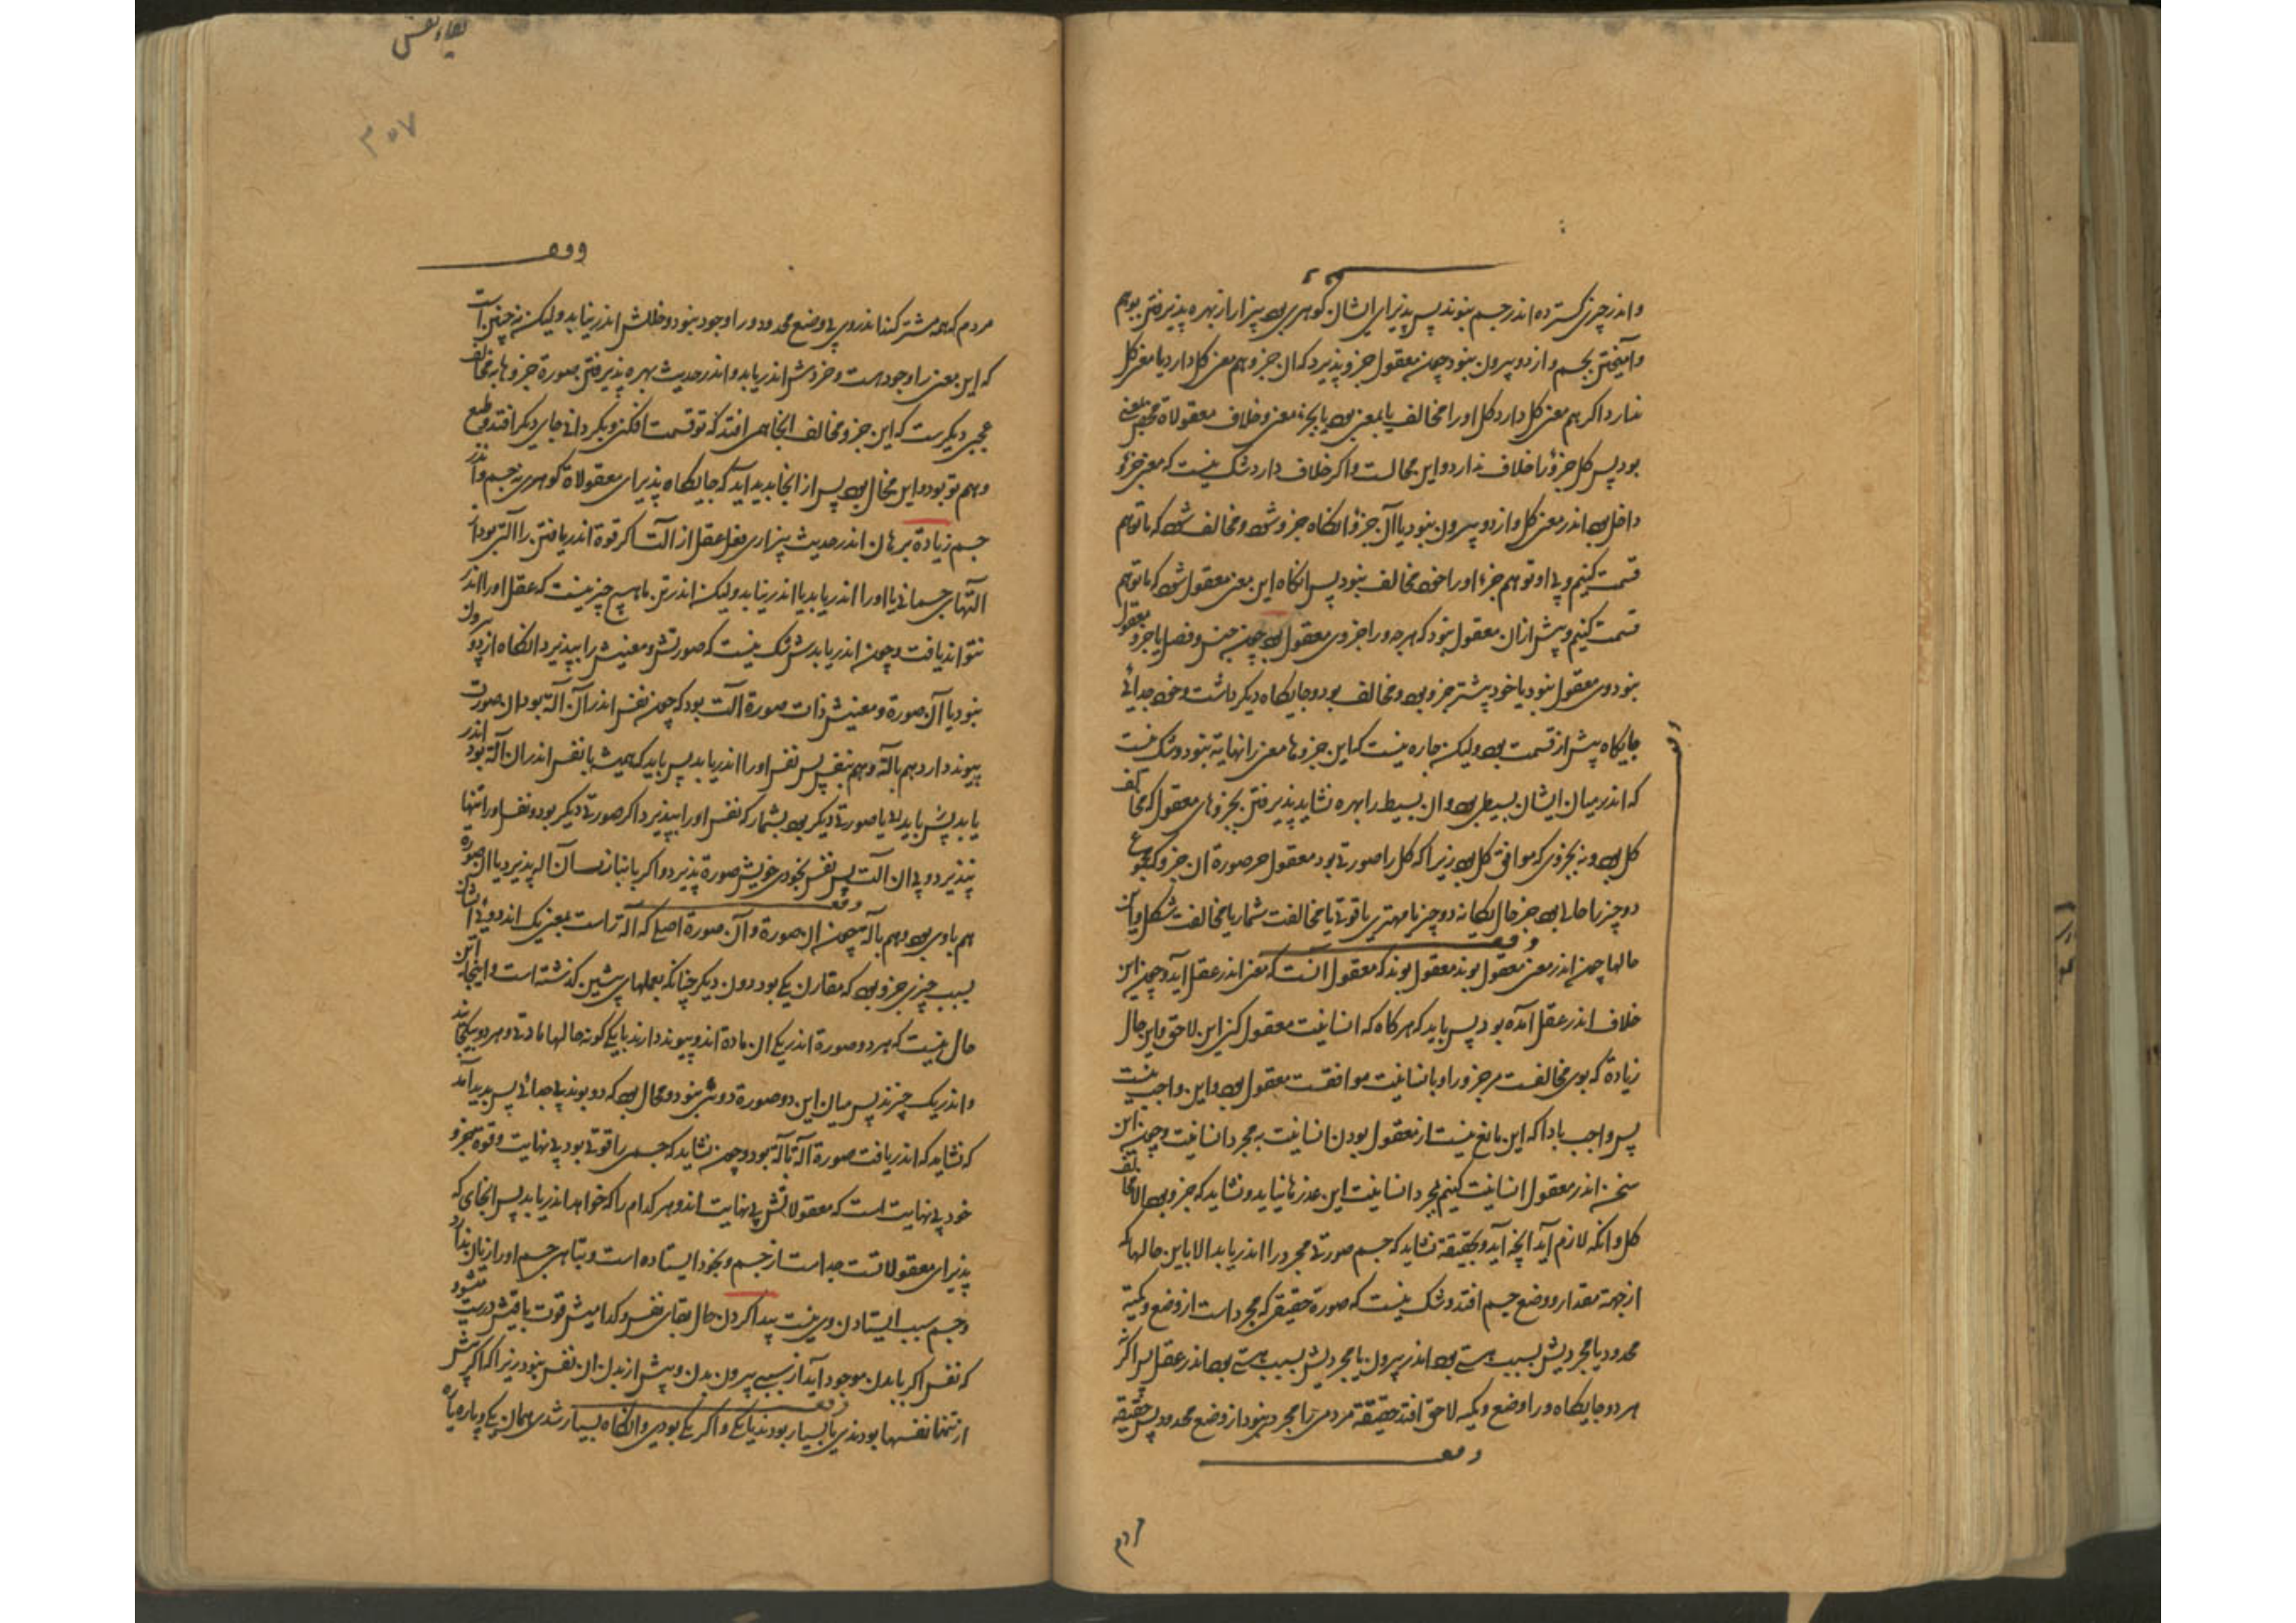 واندر چیزی کسترده اندر جسم بنوند پس پذیرای ایشان کوهری بود بیزار از بهره پذیرفتن بوهم
وآمیختن بجسم واز دو بیرون بنود چون معقول جزو پذیرد که ان جزو هم معنی کل دارد یا معنی کل
ندارد اکر هم معنی کل دارد کل اورا مخالف یا بمعنی بود یا بجزء معنی وخلاف معقولاة بمعنی
بود پس کل جزؤ را خلاف ندارد واین محالست واکر خلاف دارد شک نیست که معنی جزؤ
داخل بود اندر معنی کل واز دو بیرون بنود یا آن جزؤ انکاه جزو شود ومخالف شود که ما توهم
قسمت کنیم وبی او توهم جزء اورا خود مخالف بنود پس انکاه این معنی معقول شود که ما توهم
قسمت کنیم وپیش ازان معقول بنود که هرچه ورا جزوی معقول بود چون جنس وفصل یا جزو معقول
بنود وی معقول بنود یا خود پیشتر جزو بود ومخالف بود وجایکاه دیکر داشت وخود جدائی
جایکاه پیش از قسمت بود ولیکن چاره نیست که این جزوها معنی را نهایة بنود وشک نیست
که اندر میان ایشان بسیطی بود وان بسیط را بهره نشاید پذیرفتن بجزوهای معقول که مخالف
کل بود ونه بجزوی که موافق کل بود زیرا که کل را صورتی بود معقول جز صورة ان جزو
دو چیز را حالی بود جز حال یکانه دو چیز یا مهتری یا قوتی یا مخالفت شمار یا مخالفت شکل واین
حالها چون اندر معنی معقول بوند معقول بوند که معقول انست که معنی اندر عقل آید وچون این
خلاف اندر عقل آمده بود پس باید که هرکاه که انسانیت معقول کنی این لاحق واین حال
زیادة که بوی مخالفست مر جزو را وبا انسانیت موافقت معقول بود واین واجب نیست
پس واجب بادا که این مانع نیست از معقول بودن انسانیت به مجرد انسانیت وچون این
سخن اندر معقول انسانیت کنیم بمجرد انسانیت این عذرها نیاید ونشاید که جزو بود الا مخالف
کل وانکه لازم آید آنچه آید وبحقیقة نشاید که جسم صورتی مجرد را اندریابد الا باین حالها که
از جهة مقدار ووضع جسم افتد وشک نیست که صورة حقیقی که مجرد است از وضع وکمیة
محدود یا مجردیش بسبب هستی بود اندر بیرون یا مجردیش بسبب هستی بود اندر عقل پس اکر نه
هر دو جایکاه ورا وضع وکمیه لاحق افتد حقیقة مردمی را مجردی بنود از وضع محدود پس حقیقة
وقف
مردم که همه مشترکند اندر وی بی وضع محدود ورا وجود بنود وعقلش اندر نیابد ولیکن نه چنین است
که این معنی را وجود هست وخردش اندریابد واندر حدیث بهره پذیرفتن صورة جزوها به مخالف
عجبی دیکر ست که این جزو مخالف انجا همی افتد که تو قسمت افکنی وبکردانی جای دیکر افتد وبطبع
وهم تو بود واین محال بود پس از انجا بدید آید که جایکاه پذیرای معقولاة کوهری نه جسم واندر
جسم زیادة برهان اندر حدیث بیزاری فعل عقل از آلت اکر قوة اندریافتن را آلتی بود از
آلتهای جسمانی یا اورا اندریابد یا اندر نیابد ولیکن اندر تن ما هیچ چیز نیست که عقل اورا اندر
نتواند یافت وچون اندریابدش شک نیست که صورتش ومعنیش را بپذیرد وانکاه از دو بیرون
بنود یا آن صورة ومعنیش ذات صورة آلت بود که چون نفس اندر آن آلة بود ان صورت
پیوند دارد هم بآلة وهم بنفس پس نفس اورا اندریابد پس باید که همیشه تا نفس اندران آلة بود اندر
یابدش یا صورتی دیکر بود بشمار که نفس اورا بپذیرد اکر صورتی دیکر بود ونفس اورا تنها
بپذیرد وبی ان آلت پس نفس بخودی خویش صورة پذیرد واکر بانبازی ان آله پذیرد یا ان صورة
هم باوی بود وهم بآلة چون ان صورة وآن صورة اصلی که آلة راست بمعنی یک اند
بسبب چیزی جزو بود که مقارن یکی بود دون دیکر چنانکه بعملهای پیشین کذشته است واینجا این
حال نیست که هر دو صورة اندر یکی ان مادة اند وپیوند دارند با یکی کونه حالها مادتی وهر دو بیکجااند
واندر یک چیزند پس میان این دو صورة دوئی بنود ومحال بود که دو بوند بی جدائی پس بدید آمد
که نشاید که اندریافت صورة آلة بآلة بود وچون نشاید که جسمی را قوتی بود بی نهایت وقوة تمیز و
خود بی نهایت است که معقولاتش بی نهایت اند وهر کدام را که خواهد اندریابد پس انجای که
پذیرای معقولاتست جداست از جسم وبخود ایستاده است وتباهی جسم اورا زیان ندارد
وجسم سبب ایستادن وی نیست پیدا کردن حال بقای نفس وکدامیش قوت باقیش درست میشود
که نفس اکر با بدن موجود آید از سببی بیرون بدن وپیش از بدن ان نفس بنود زیرا که اکر پیش
از تنها نفسها بودندی یا بسیار بودند یا یکی واکر یکی بودی وانکاه بسیار شدی همان یکی پاره پاره